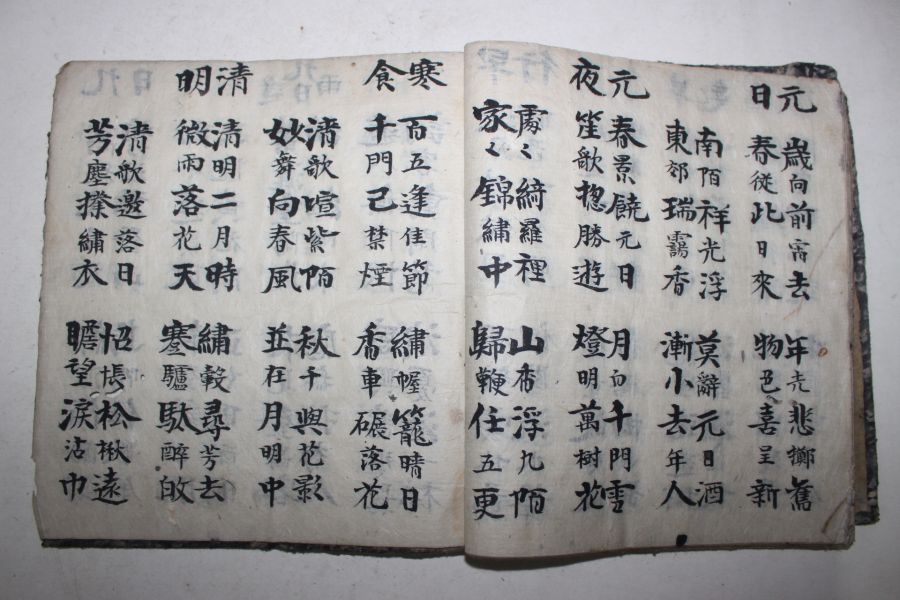 元日
歲向前宵去
春從此日來
年光悲擲舊
物色喜呈新
南陌祥光浮
東郊瑞靄香
莫辭元日酒
漸小去年人
元夜
春景饒元日
笙歌惚勝遊
月白千門雪
燈明萬樹花
處〻綺羅裡
家〻錦繡中
山杏浮九陌
歸鞭任五更
寒食
百五逢佳節
千門已禁煙
繡幄籠晴日
香車碾落花
清歌喧紫陌
妙舞向春風
秋千與花影
並在月明中
清明
清明二月時
微雨落花天
繡轂尋芳去
蹇驢馱醉敀
清歌邀落日
芳塵撲繡衣
怊悵松楸遠
瞻望淚沾巾